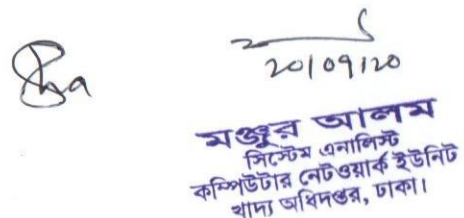 20/09/20
মঞ্জুর আলম
সিস্টেম এনালিস্ট
কম্পিউটার নেটওয়ার্ক ইউনিট
খাদ্য অধিদপ্তর, ঢাকা।